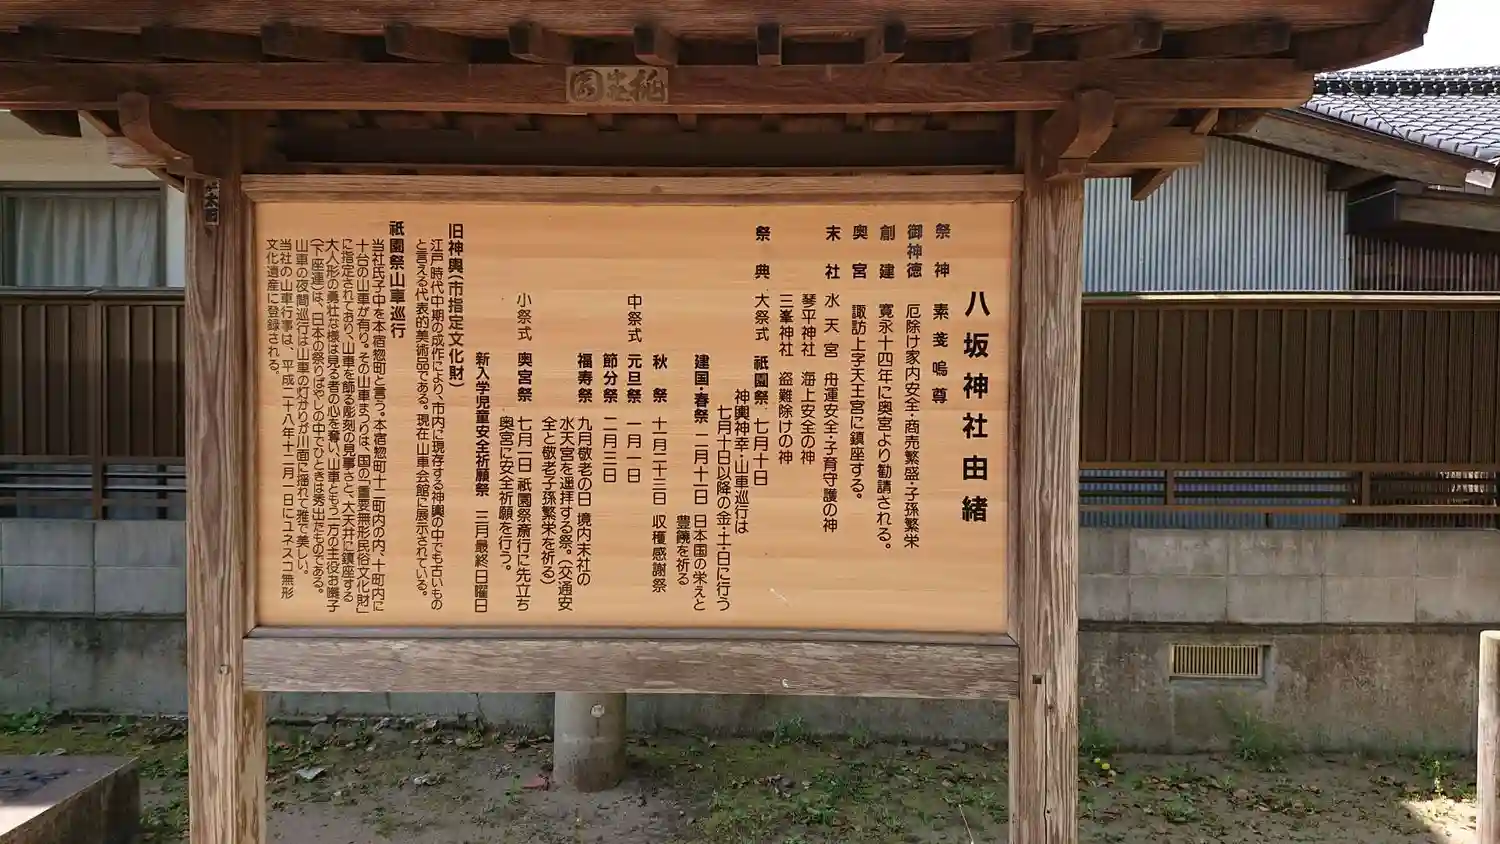 祇園
八坂神社由緒
祭神 素戔嗚尊
御神徳 厄除け家内安全・商売繁盛・子孫繁栄
創建 寛永十四年に奥宮より勧請される。
奥宮 諏訪上字天王宮に鎮座する。
末社 水天宮 舟運安全・子育守護の神
琴平神社 海上安全の神
三峯神社 盗難除けの神
祭典 大祭式 祇園祭 七月十日
神輿神幸・山車巡行は
七月十日以降の金・土・日に行う
建国・春祭 二月十一日 日本国の栄えと
豊饒を祈る
秋祭 十一月二十三日 収穫感謝祭
中祭式 元旦祭 一月一日
節分祭 二月三日
福寿祭 九月敬老の日 境内末社の
水天宮を遥拝する祭。(交通安
全と敬老子孫繁栄を祈る)
小祭式 奥宮祭 七月一日 祇園祭斎行に先立ち
奥宮に安全祈願を行う。
新入学児童安全祈願祭 三月最終日曜日
旧神輿(市指定文化財)
江戸時代中期の成作により、市内に現存する神輿の中でも古いもの
と言える代表的美術品である。現在山車会館に展示されている。
祇園祭山車巡行
当社氏子中を本宿惣町と言う。本宿惣町十二町内の内、十町内に
十台の山車が有り。その山車まつりは、国の「重要無形民俗文化財」
に指定されており、山車を飾る彫刻の見事さと、大天井に鎮座する
大人形の勇壮な様は見る者の心を奪い、山車ともう一方の主役お囃子
(下座連)は、日本の祭りばやしの中でひときは秀出たものである。
山車の夜間巡行は山車の灯がりが川面に揺れて雅で美しい。
当社の山車行事は、平成二十八年十二月一日にユネスコ無形
文化遺産に登録される。